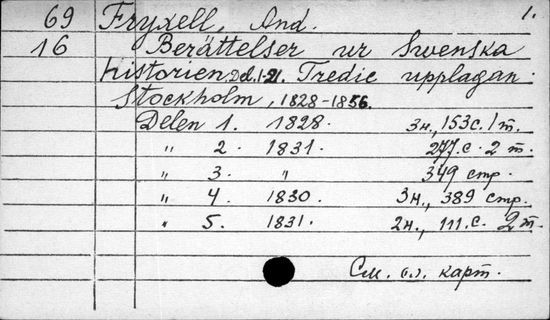 69 Fryxell, And. 1.
16 Berättelser ur Swenska
historien. Del. 1-21. Tredie upplagan.
Stockholm, 1828-1856.
Delen 1. 1828. 3н., 153с. 1 т.
" 2. 1831. 277.с. 2 т.
" 3. " 349 стр.
" 4. 1830. 3н., 389 стр.
" 5. 1831. 2н., 111.с. 2 т.
См. сл. карт.